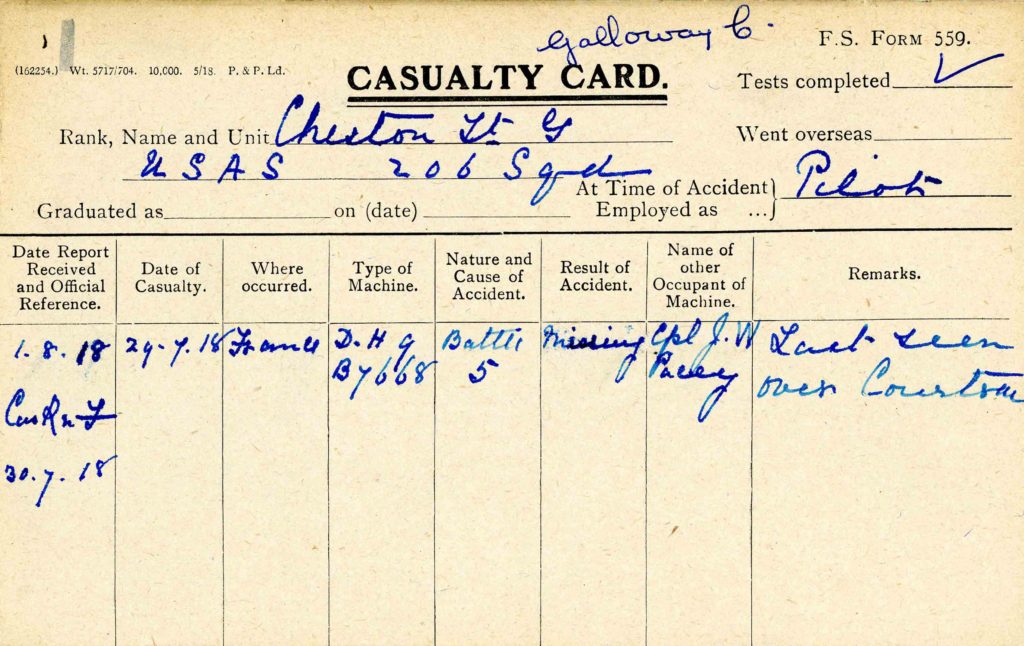 Galloway C.
F.S. FORM 559.
(162254.) Wt. 5717/704. 10,000. 5/18. P. & P. Ld.
CASUALTY CARD.
Tests completed ✓
Rank, Name and Unit Cheston Lt G
Went overseas
USAS 206 Sqd
At Time of Accident } Pilot
Employed as ...
Graduated as on (date)
Date Report Received and Official Reference.
Date of Casualty.
Where occurred.
Type of Machine.
Nature and Cause of Accident.
Result of Accident.
Name of other Occupant of Machine.
Remarks.
1.8.18 29.7.18 France D.H 9 Battle Missing Cpl J.W Last seen
B7668 5 Pacey over Courtrai
30.7.18